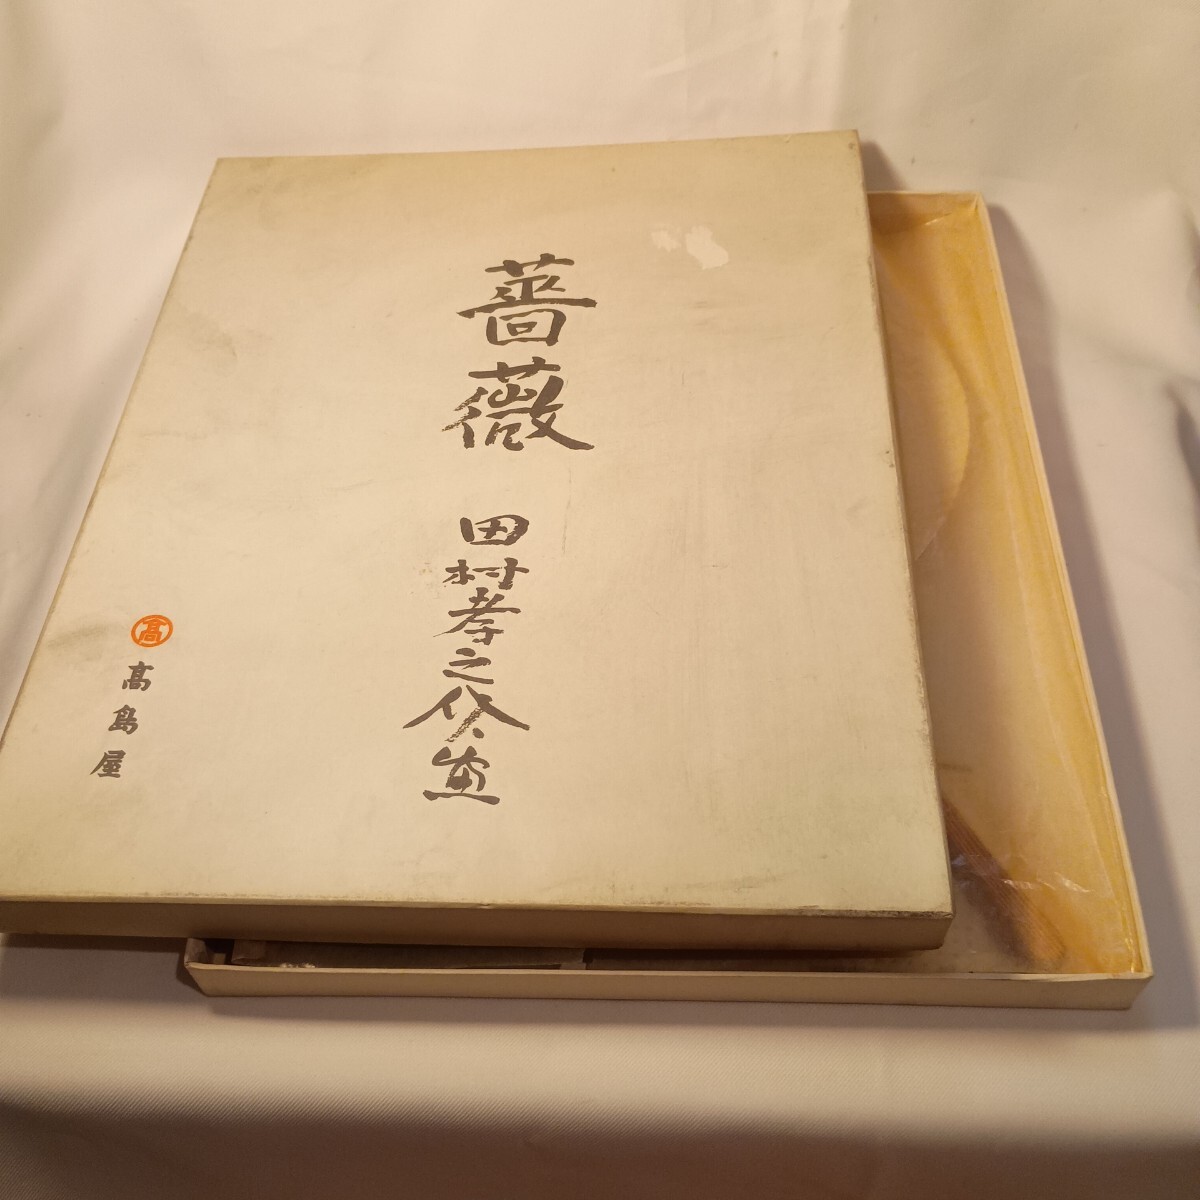 薔薇
田村孝之介画
髙
髙島屋